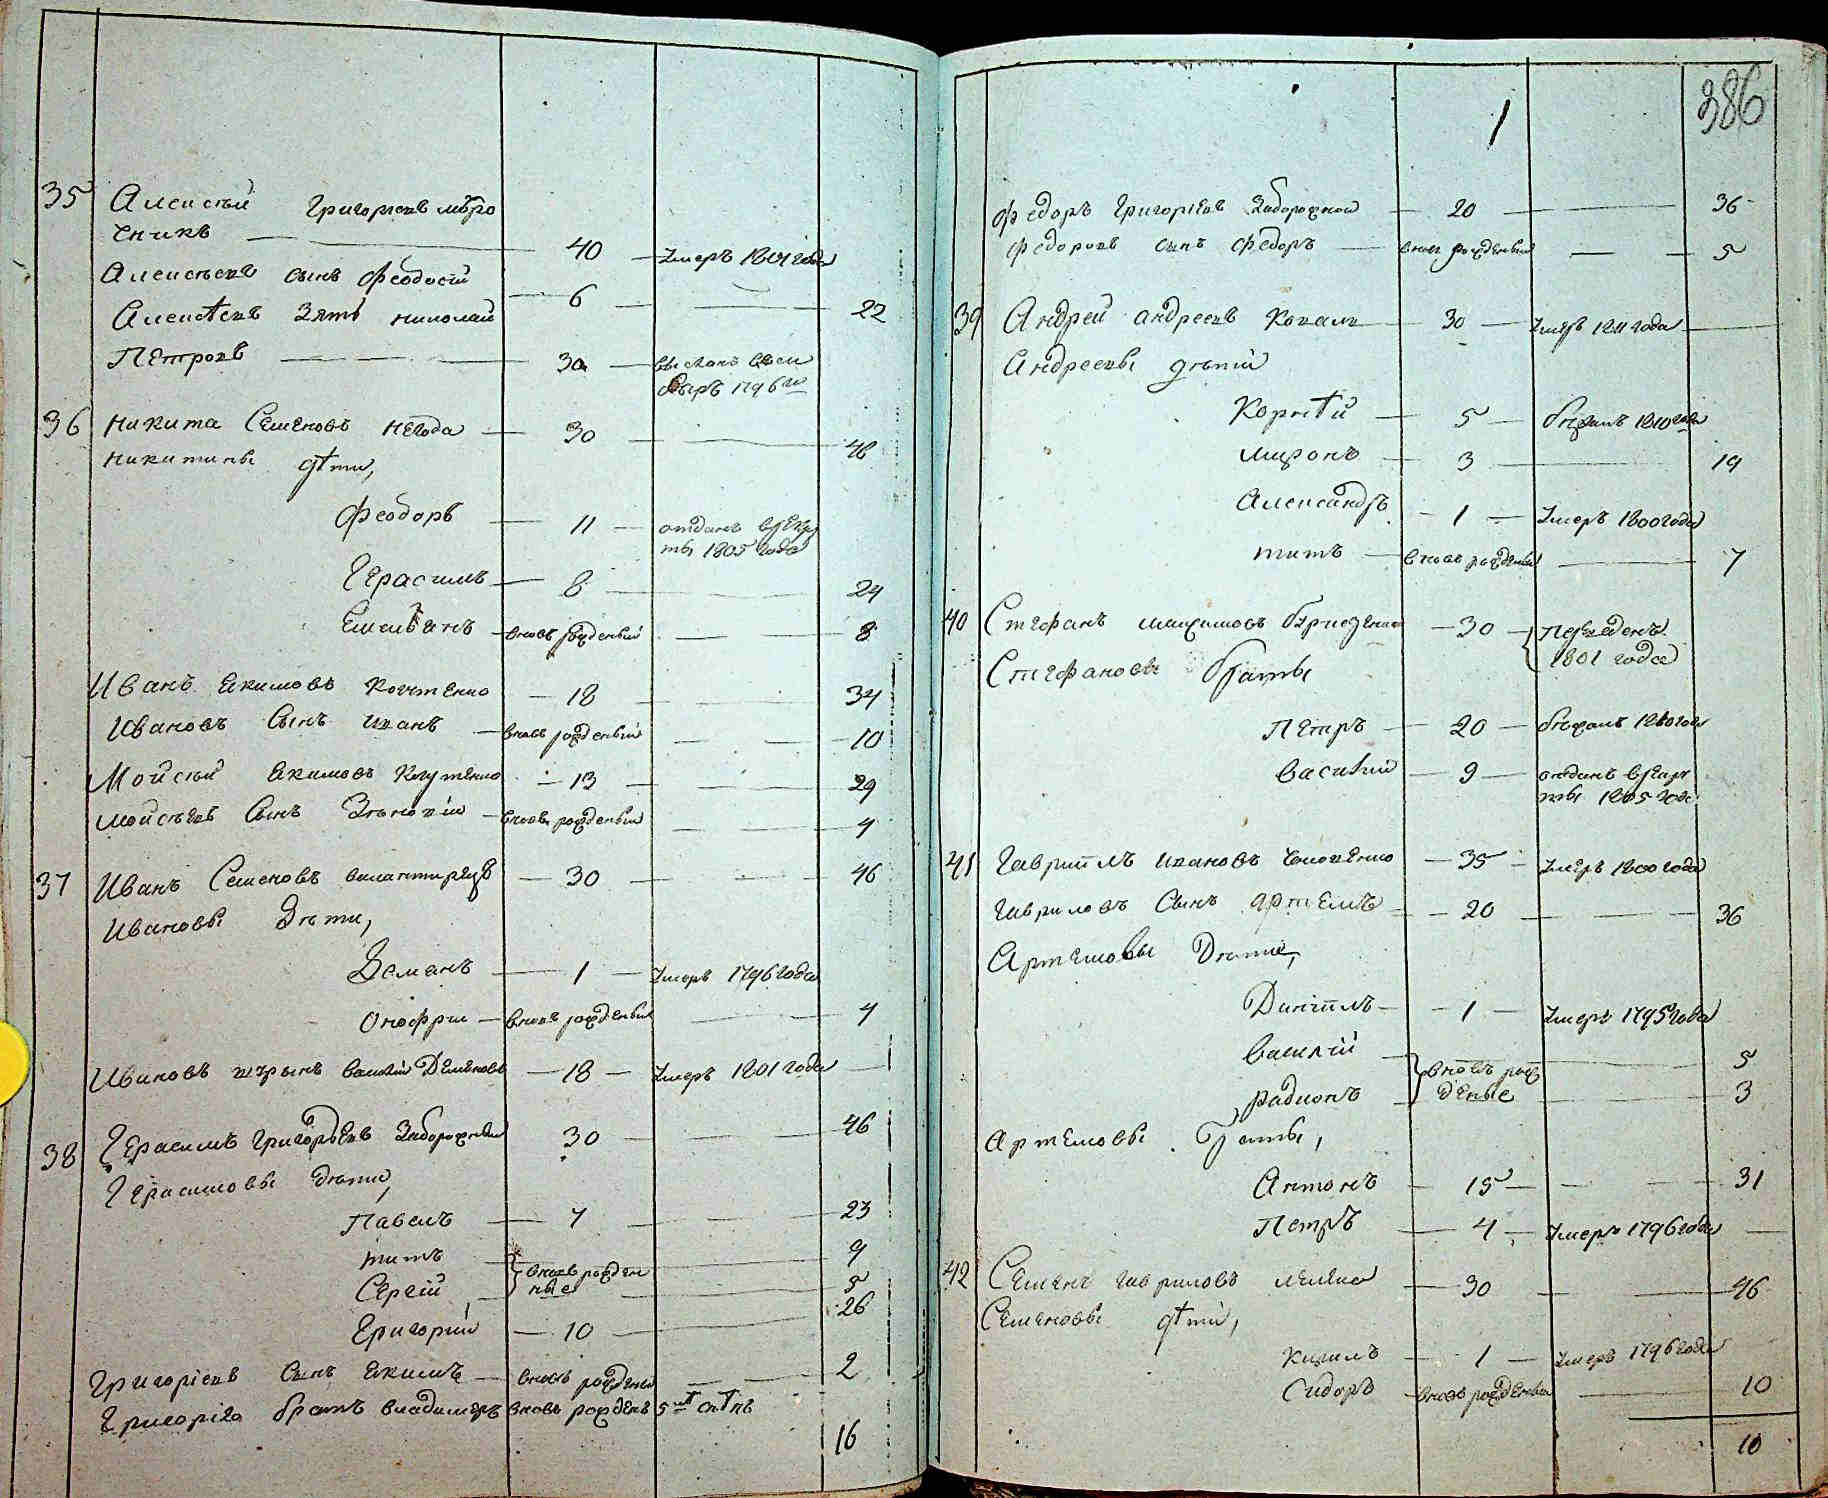 35 Алексѣй Григорьевъ мѣро
сникъ — 40 — умеръ 1801 года
Алексѣевъ сынъ Феодосій — 6 — — 22
Алексѣевъ зять николай
Петровъ — 30 — высланъ всеи
бырь 1796го
36 никита Семеновъ негода — 30 — — 46
никитины дѣти,
Феодоръ — 11 — отданъ врекру
ты 1805 года
Герасимъ — 8 — — 24
Емельянъ — вновь рожденный — — 8
Иванъ Екимовъ — 18 — — 34
Ивановъ Сынъ иванъ — вновь рожденный — — 10
Мойсей Екимовъ — 13 — — 29
мойсѣевъ Сынъ Зѣновій — вновь рожденный — — 4
37 Иванъ Семеновъ — 30 — — 46
Ивановы Дѣти,
Деманъ — 1 — умеръ 1796 года
Онофри — вновь рожденный — — 4
Ивановъ шурынъ василій Деменовъ — 18 — умеръ 1801 года —
38 Герасимъ григорьевъ Заборожный — 30 — — 46
Герасимовы дѣти,
Павелъ — 7 — — 23
титъ — вновь рожден — 9
Сергій — ные — 5
Григорій — 10 — 26
Григоріевъ Сынъ Екимъ — вновь рожденый — — 2
Григорія братъ владимеръ вновь рожденъ 5ти лѣтъ
16
386
1
Федоръ Григоріевъ Заборожной — 20 — 36
Федоровъ сынъ Федоръ — вновь рожденный — — 5
39 Андрей андреевъ Коваль — 30 — умеръ 1811 года —
Андреевы дѣти
Корнѣй — 5 — бѣжалъ 1810 года
миронъ — 3 — 19
Александръ — 1 — умеръ 1800 года
титъ — вновь рожденый — 7
40 Стефанъ максимовъ — 30 — переведенъ
1801 года
Стефановы браты
Петръ — 20 — бѣжалъ 1810 года
василій — 9 — отданъ врекру
ты 1805 года
41 Гавріилъ ивановъ — 35 — умеръ 1800 года
гавриловъ Сынъ артемъ — 20 — — 36
Артемовы Дѣти,
Даніилъ — 1 — умеръ 1795 года
василій — вновь рож — 5
радионъ — деные — 3
Артемовы браты,
Антонъ — 15 — — 31
Петръ — 4 — умеръ 1796 года —
42 Семенъ гавриловъ — 30 — — 46
Семеновы дѣти,
Кирилъ — 1 — умеръ 1796 года
Сидоръ — вновь рожденный — 10
10